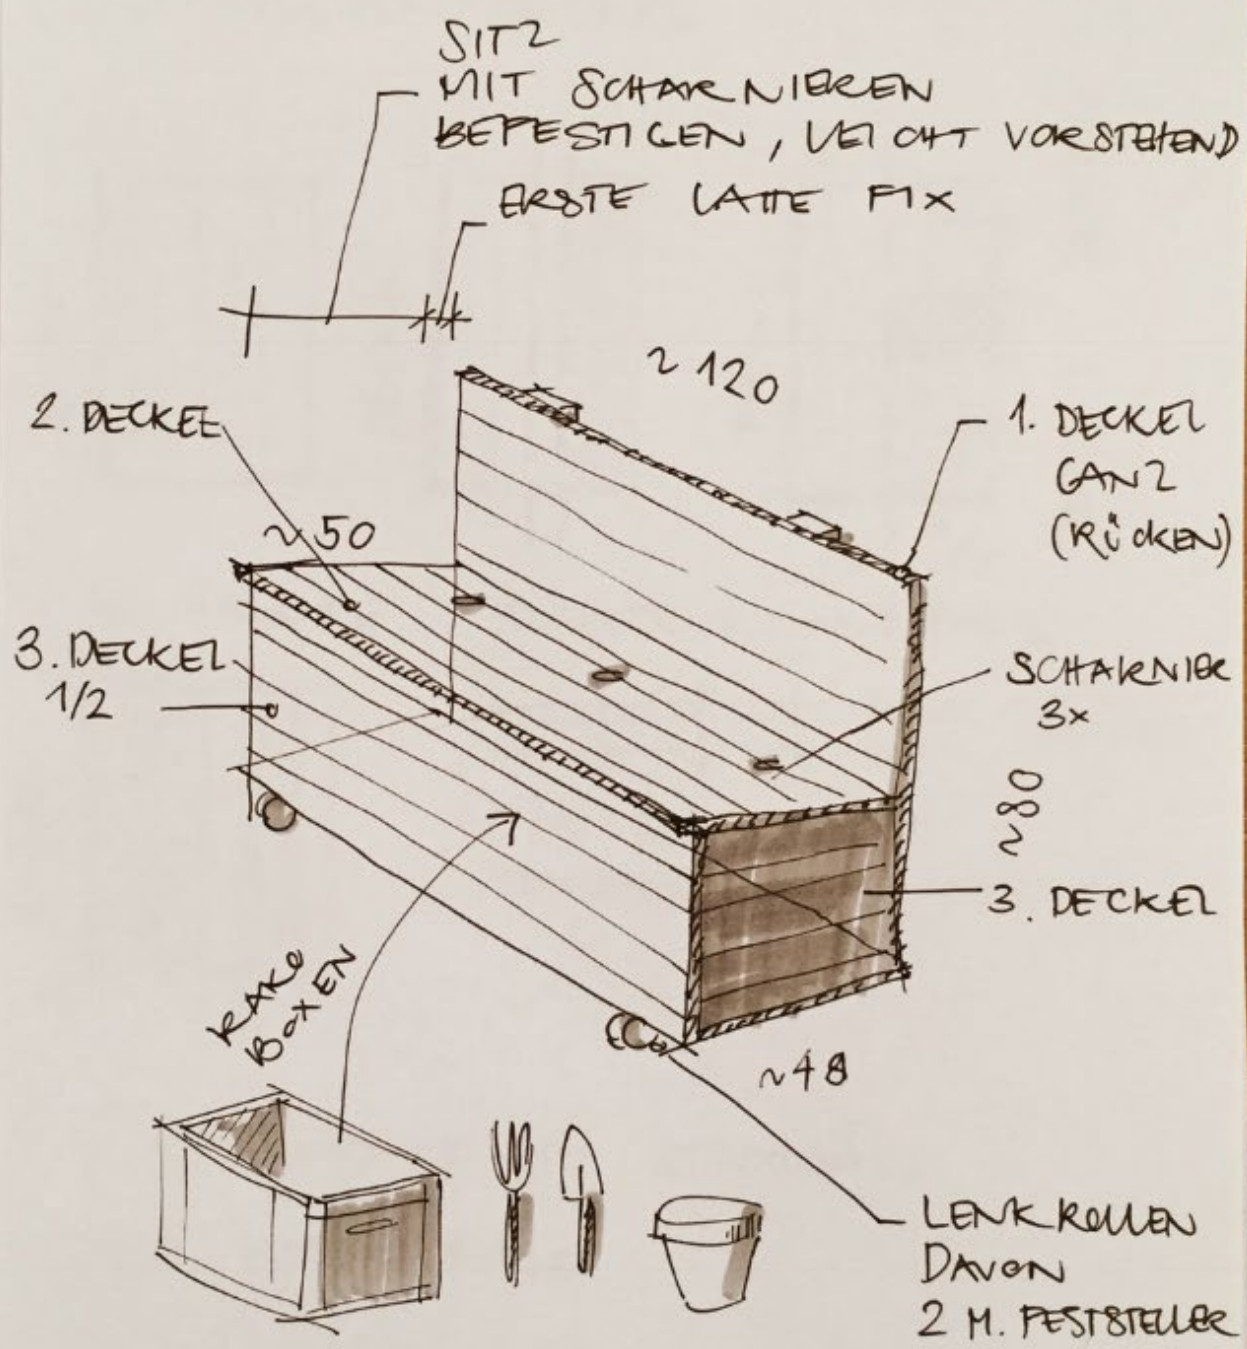 SITZ
MIT SCHARNIEREN
BEFESTIGEN, LEICHT VORSTEHEND
ERSTE LATTE FIX
~ 120
2. DECKEL
1. DECKEL
GANZ
(RÜCKEN)
~ 50
3. DECKEL
1/2
SCHARNIER
3x
~ 80
3. DECKEL
RAKO
BOXEN
~48
LENKROLLEN
DAVON
2 M. FESTSTELLER